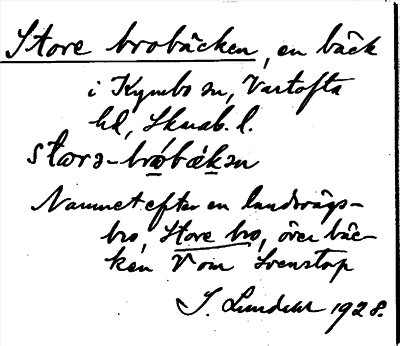 Store brobäcken, en bäck
i Kymbo sn, Vartofta
hd, Skarab. l.
storə-brób́äḱən
Namnet efter en landsvägs-
bro, Store bro, över bäc-
ken V om Svenstorp
J. Lundahl 1928.